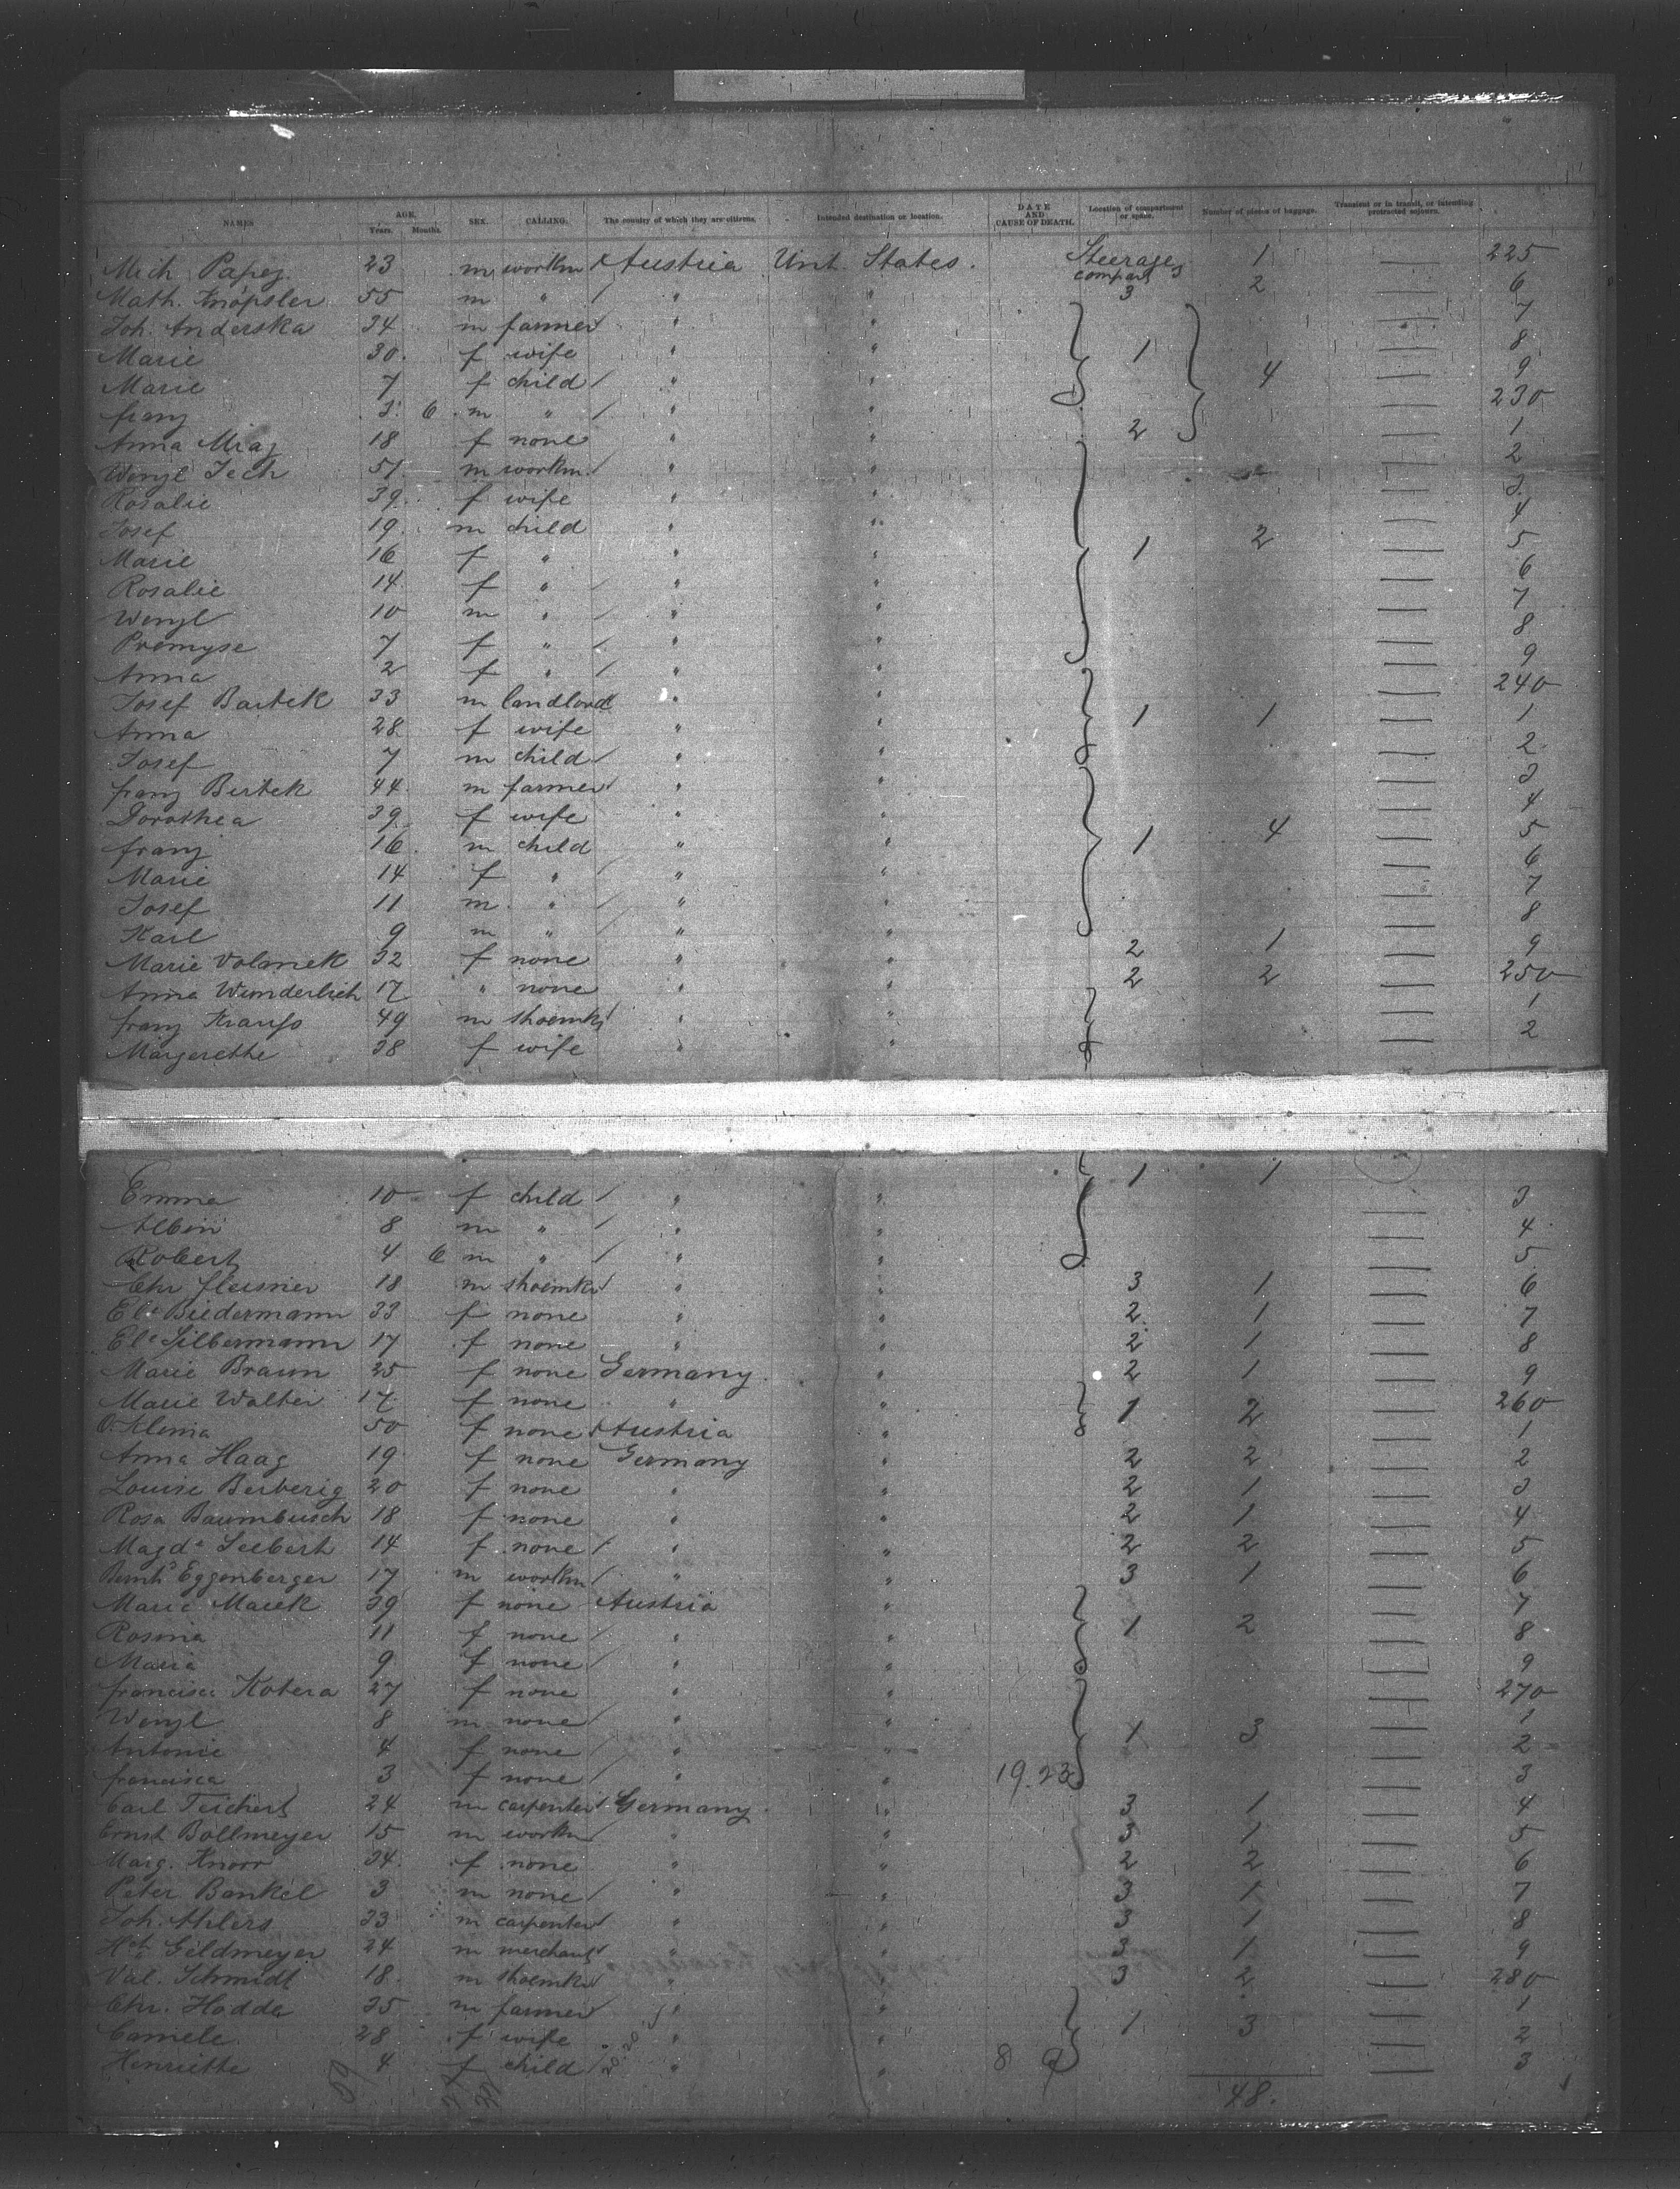 NAMES AGE. Years. Months. SEX. CALLING. The country of which they are citizens. Intended destination or location. DATE AND CAUSE OF DEATH. Location of compartment or space. Number of pieces of baggage. Transient or in transit, or intending protracted sojourn.
Mich Papez 23 m workm Austria Unit. States. Steerage 1 — 225
Math. Knöpsler 55 m " / " " compart 3 2 — 6
Joh. Anderska 34 m farmer " " — 7
Marie 30 f wife " " 1 — 8
Marie 7 f child / " " 4 — 9
franz 3 6 m " / " " — 230
Anna Mraz 18 f none " " 2 — 1
Wenzl Tech 51 m workm / " " — 2
Rosalie 39 f wife " " — 3
Josef 19 m child " " — 4
Marie 16 f " " " 1 2 — 5
Rosalie 14 f " / " " — 6
Wenzl 10 m " / " " — 7
Premyse 7 f " / " " — 8
Anna 2 f " / " " — 9
Josef Bartek 33 m landlord " " — 240
Anna 28 f wife " " 1 1 — 1
Josef 7 m child / " " — 2
franz Bertek 44 m farmer " " — 3
Dorothea 39 f wife " " — 4
franz 16 m child " " 1 4 — 5
Marie 14 f " / " " — 6
Josef 11 m " / " " — 7
Karl 9 m " / " " — 8
Marie Volmek 32 f none " " 2 1 — 9
Anna Wunderlich 17 " none " " 2 2 — 250
franz Krauss 49 m shoemkr " " — 1
Margerethe 38 f wife " " — 2
Emma 10 f child / " " 1 1 — 3
Albin 8 m " / " " — 4
Robert 4 6 m " / " " — 5
Chr fleisner 18 m shoemkr " " 3 1 — 6
Ele Biedermann 33 f none " " 2 1 — 7
Ele Silbermann 17 f none " " 2 1 — 8
Marie Braun 25 f none Germany " 2 1 — 9
Marie Walter 17 f none " " 1 2 — 260
O. Klema 50 f none Austria " — 1
Anna Haag 19 f none Germany " 2 2 — 2
Louise Berberig 20 f none " " 2 1 — 3
Rosa Baumbusch 18 f none " " 2 1 — 4
Magda Seebert 14 f none / " " 2 2 — 5
Bernh Eggenberger 17 m workm / " " 3 1 — 6
Marie Macek 39 f none Austria " — 7
Rosina 11 f none / " " 1 2 — 8
Maria 9 f none / " " — 9
francisca Kotera 27 f none " " — 270
Wenzl 8 m none / " " — 1
Antonie 4 f none / " " 1 3 — 2
francisca 3 f none / " " 19.23 — 3
Carl Teichert 24 m carpenter Germany " 3 1 — 4
Ernst Bollmeyer 15 m workm / " " 3 1 — 5
Marg. Knorr 34 f none " " 2 2 — 6
Peter Bankel 3 m none / " " 3 1 — 7
Joh. Ahlers 33 m carpenter " " 3 1 — 8
Hch Geldmeyer 24 m merchant " " 3 1 — 9
Val. Schmidt 18 m shoemkr " " 3 2 — 280
Chr. Hadde 35 m farmer " " — 1
Camele 28 f wife " " 1 3 — 2
Henriette 4 f child / " " 8 9 — 3
48.